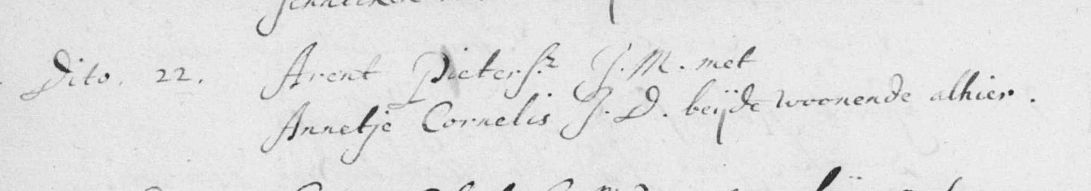 Dito. 22. Arent Pieters.z J.M. met
Annetje Cornelis J.D. beijde woonende alhier.